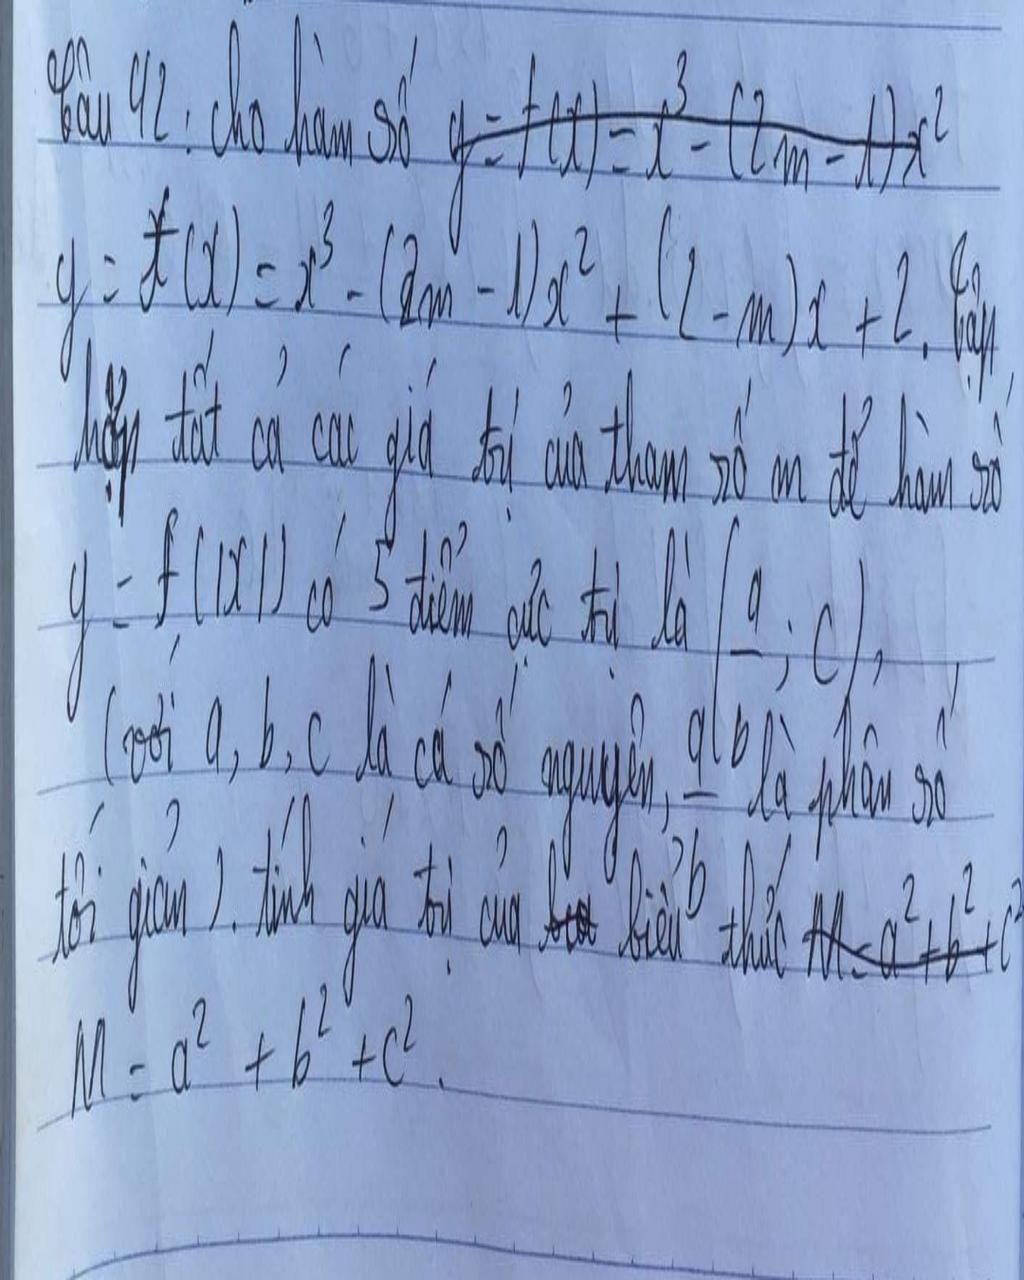 Câu 42: cho hàm số y = f(x) = x³ - (2m - 1)x²
y = f(x) = x³ - (2m - 1)x² + (2 - m)x + 2. Tập
hợp tất cả các giá trị của tham số m để hàm số
y = f(|x|) có 5 điểm cực trị là (a/b; c),
(với a, b, c là cá số nguyên, a/b là phân số
tối giản). tính giá trị của biểu thức M = a² + b² + c²
M = a² + b² + c².